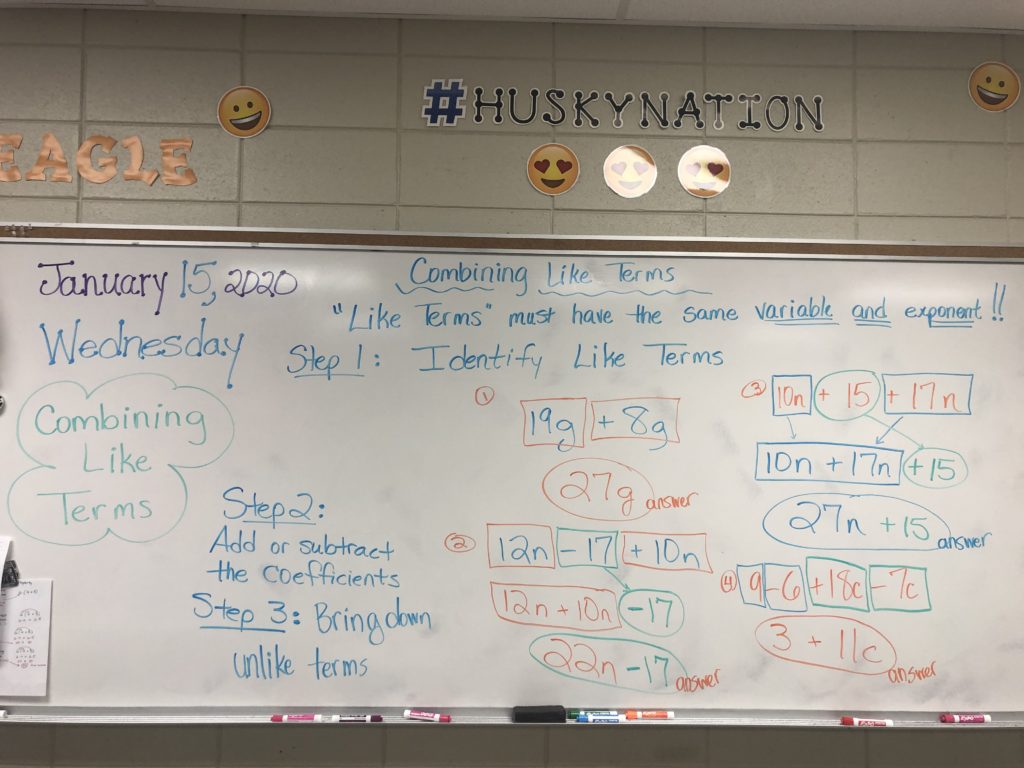 #HUSKYNATION
EAGLE
January 15, 2020
Wednesday
Combining
Like
Terms
Combining Like Terms
"Like Terms" must have the same variable and exponent!!
Step 1: Identify Like Terms
Step 2:
Add or subtract
the coefficients
Step 3: Bring down
unlike terms
①
19g + 8g
27g answer
②
12n - 17 + 10n
12n + 10n - 17
22n - 17 answer
③ 10n + 15 + 17n
10n + 17n + 15
27n + 15 answer
④ 9 - 6 + 18c - 7c
3 + 11c answer